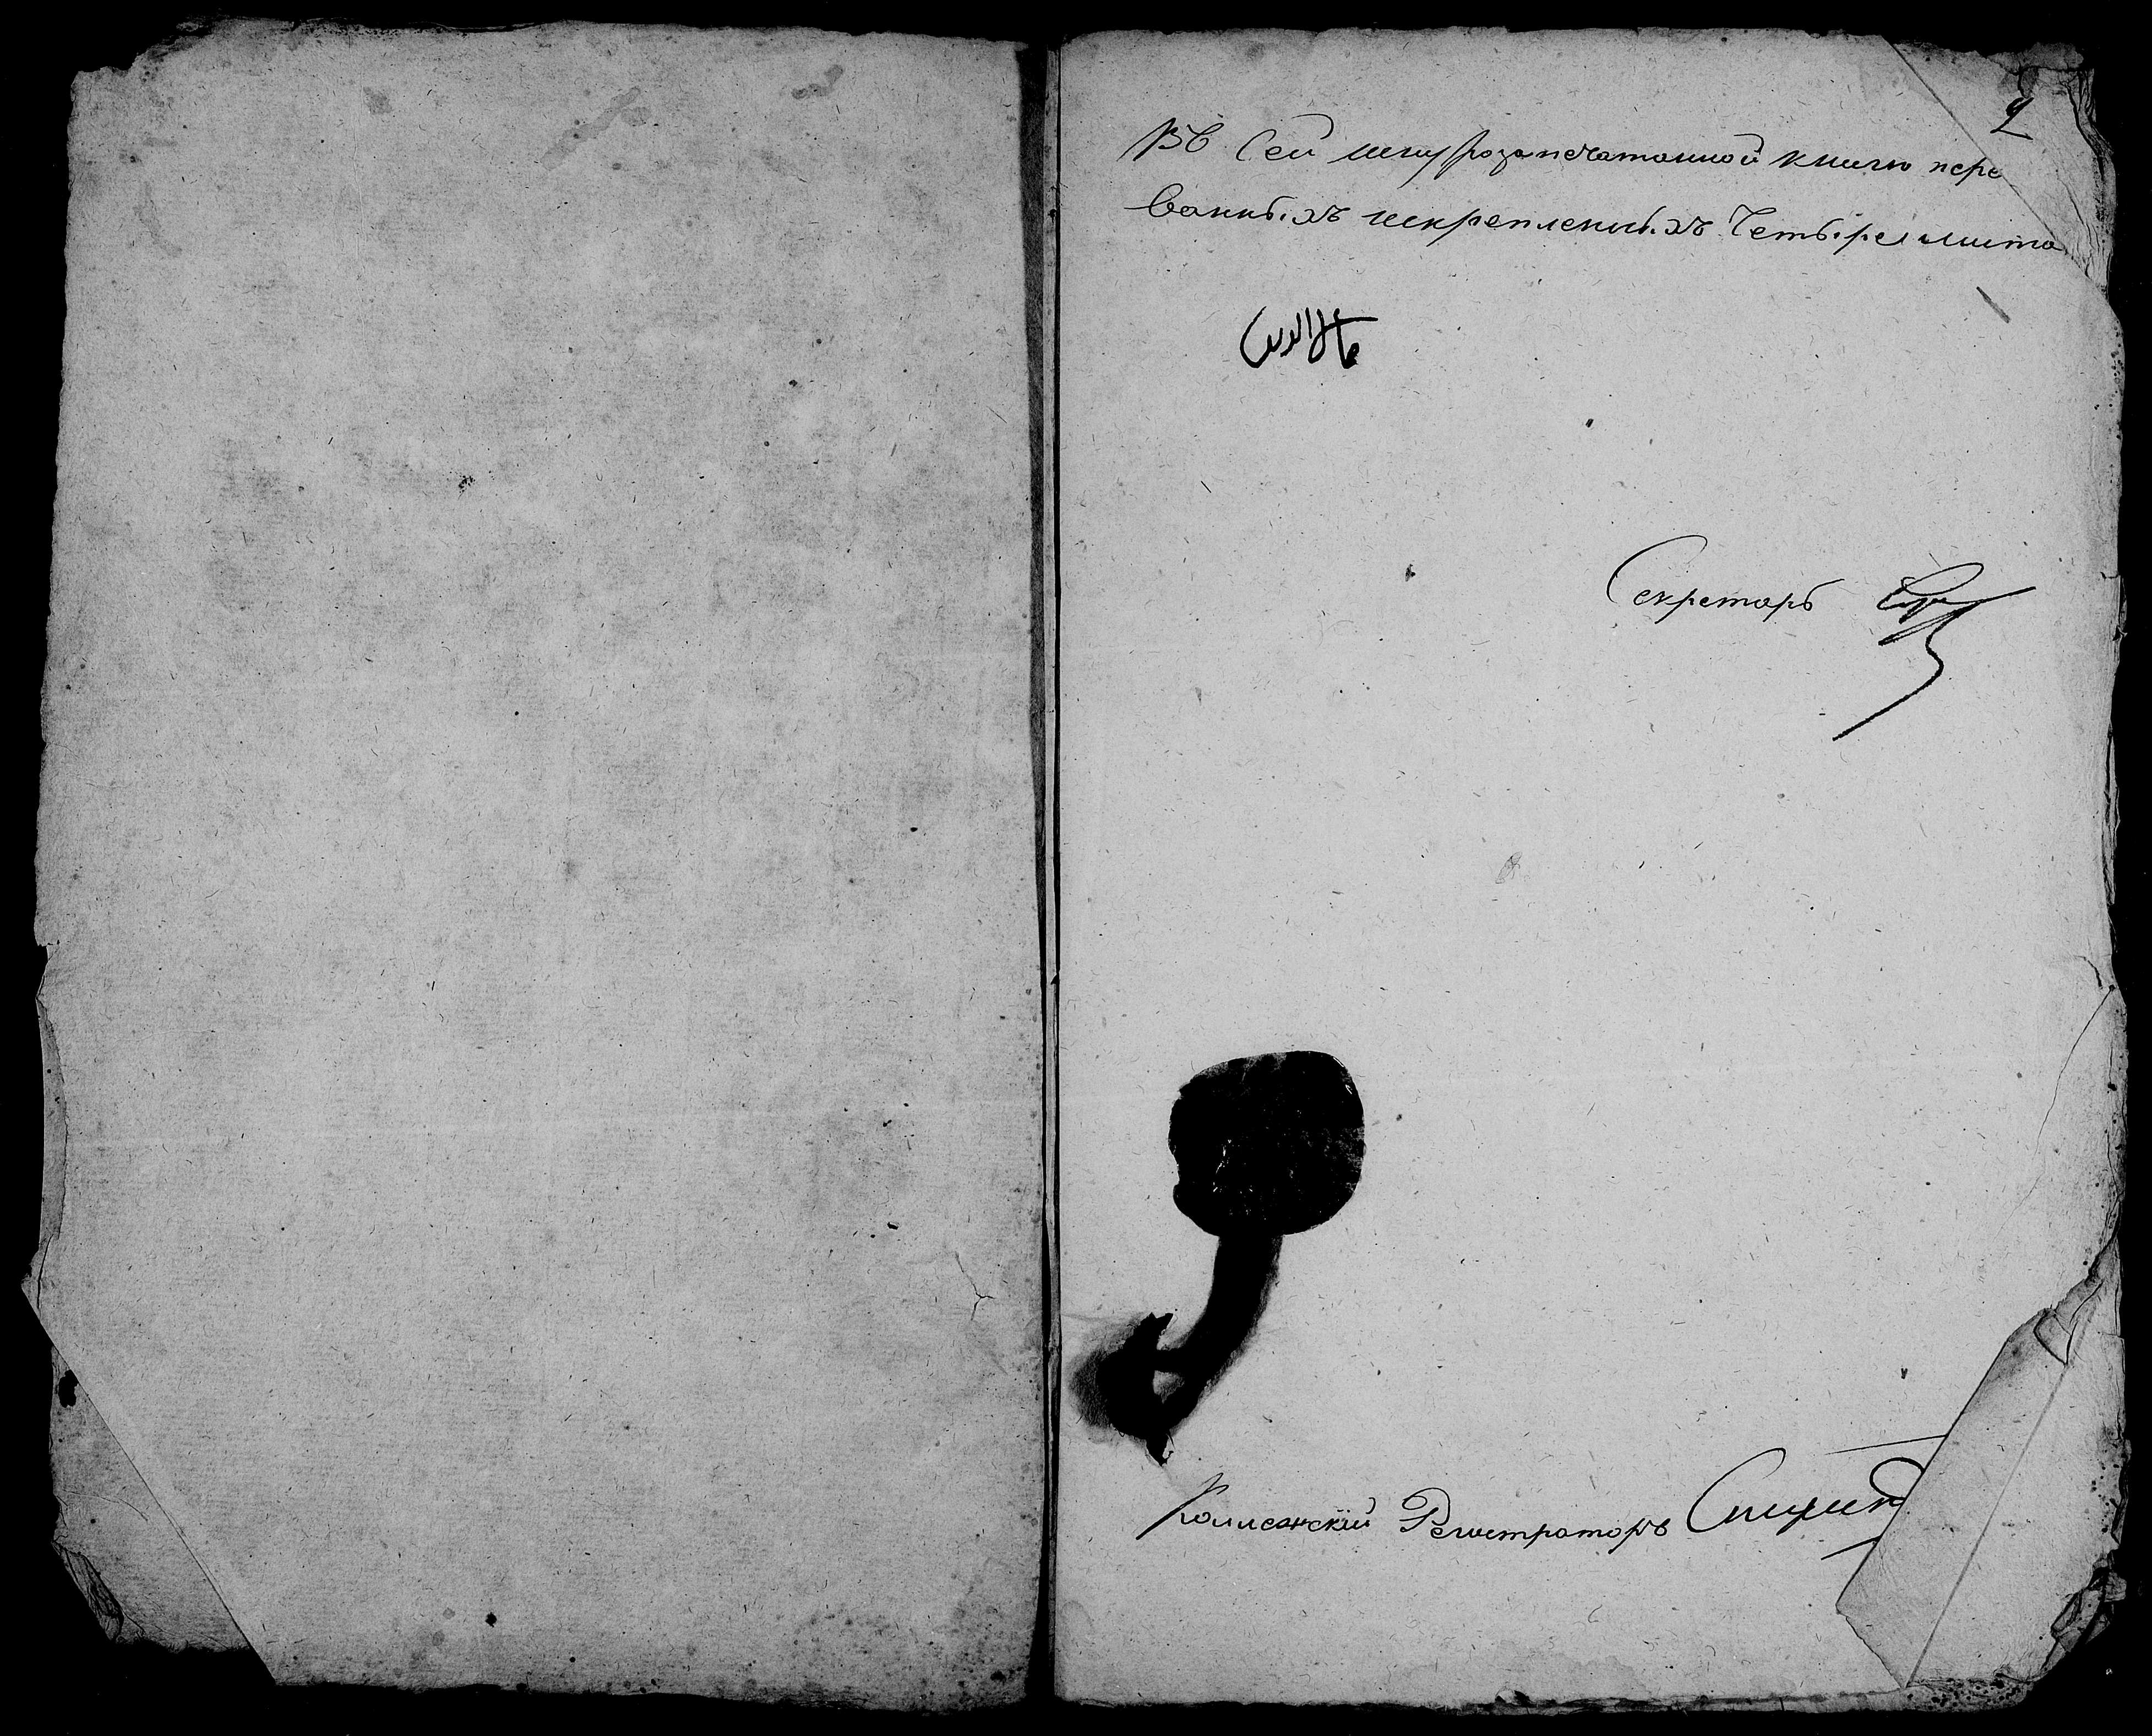 2
Въ Сей шнурозапечатанной книгѣ пере
ванныхъ искрепленныхъ Четыре листа
علاالدين
Секретарь
Коллежскій Регистраторъ Спицин